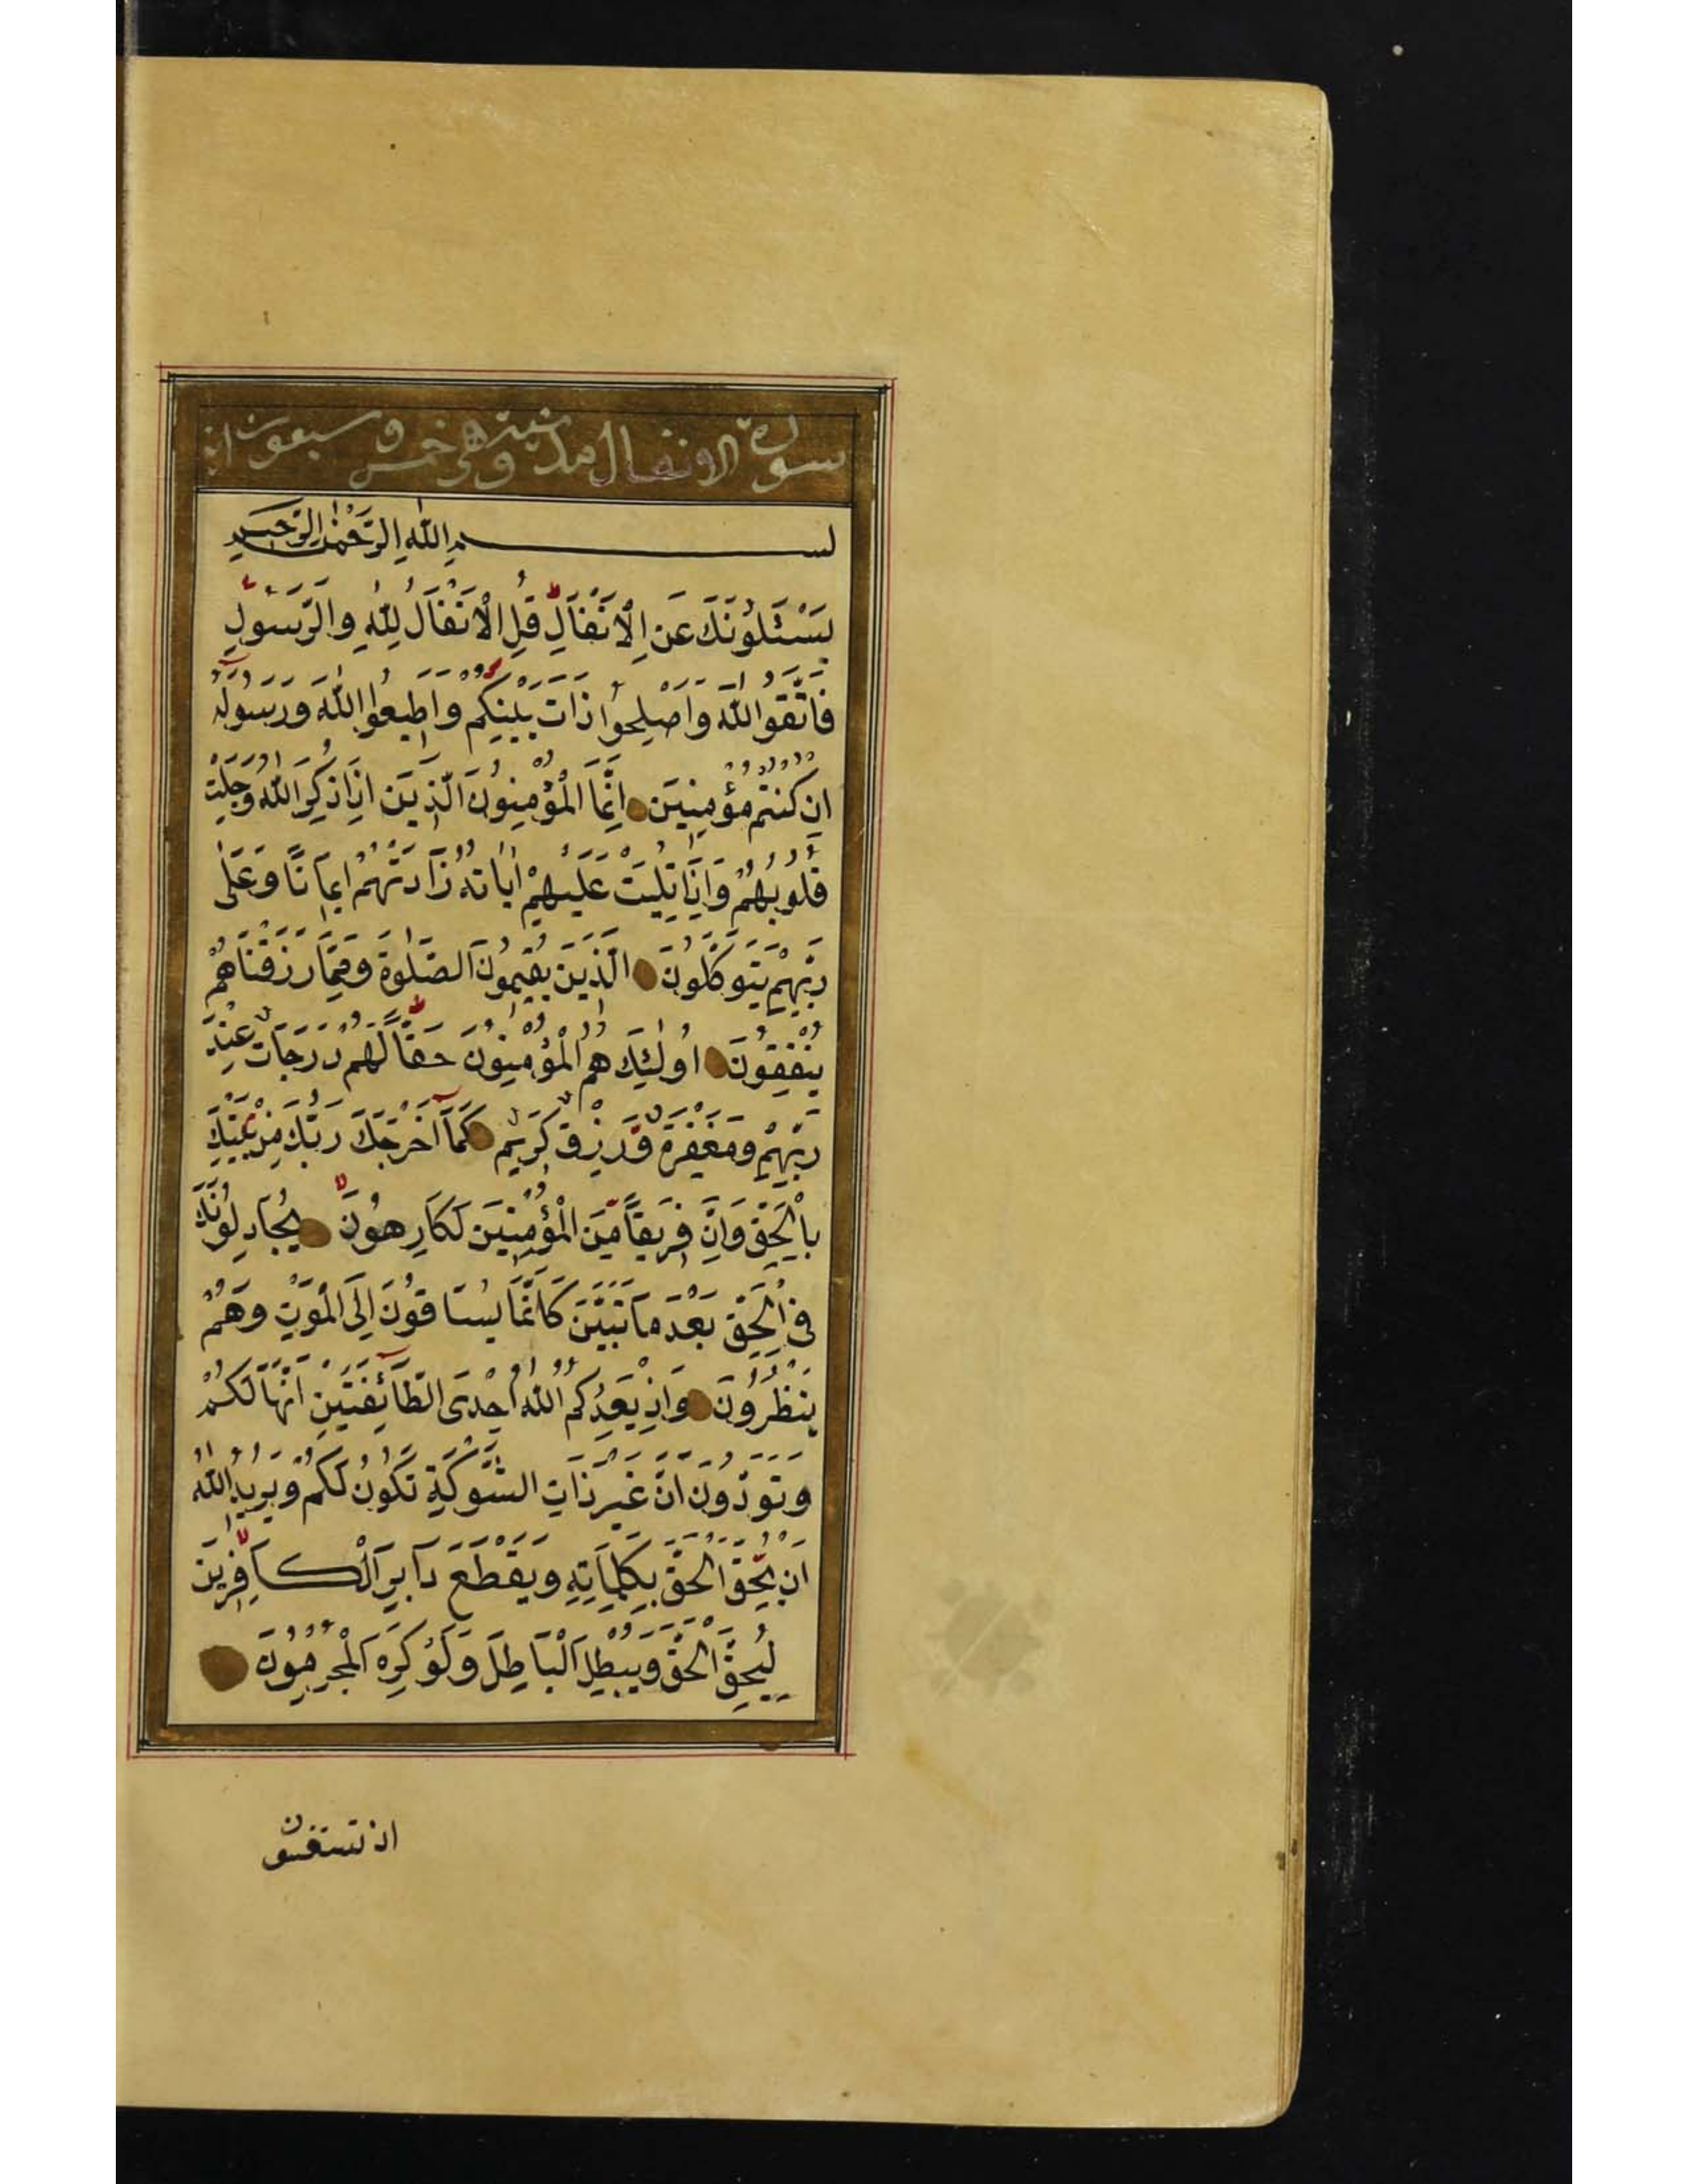 سورة الانفال مدنية وهي خمس وسبعون اية
بسم الله الرحمن الرحيم
يَسْئَلُونَكَ عَنِ الْاَنْفَالِ قُلِ الْاَنْفَالُ لِلّٰهِ وَالرَّسُولِ
فَاتَّقُوا اللّٰهَ وَاَصْلِحُوا ذَاتَ بَيْنِكُمْ وَاَطِيعُوا اللّٰهَ وَرَسُولَهُ
اِنْ كُنْتُمْ مُؤْمِنِينَ اِنَّمَا الْمُؤْمِنُونَ الَّذِينَ اِذَا ذُكِرَ اللّٰهُ وَجِلَتْ
قُلُوبُهُمْ وَاِذَا تُلِيَتْ عَلَيْهِمْ اٰيَاتُهُ زَادَتْهُمْ اِيمَانًا وَعَلٰى
رَبِّهِمْ يَتَوَكَّلُونَ الَّذِينَ يُقِيمُونَ الصَّلٰوةَ وَمِمَّا رَزَقْنَاهُمْ
يُنْفِقُونَ اُولٰئِكَ هُمُ الْمُؤْمِنُونَ حَقًّا لَهُمْ دَرَجَاتٌ عِنْدَ
رَبِّهِمْ وَمَغْفِرَةٌ وَرِزْقٌ كَرِيمٌ كَمَآ اَخْرَجَكَ رَبُّكَ مِنْ بَيْتِكَ
بِالْحَقِّ وَاِنَّ فَرِيقًا مِنَ الْمُؤْمِنِينَ لَكَارِهُونَ يُجَادِلُونَكَ
فِي الْحَقِّ بَعْدَ مَا تَبَيَّنَ كَاَنَّمَا يُسَاقُونَ اِلَى الْمَوْتِ وَهُمْ
يَنْظُرُونَ وَاِذْ يَعِدُكُمُ اللّٰهُ اِحْدَى الطَّآئِفَتَيْنِ اَنَّهَا لَكُمْ
وَتَوَدُّونَ اَنَّ غَيْرَ ذَاتِ الشَّوْكَةِ تَكُونُ لَكُمْ وَيُرِيدُ اللّٰهُ
اَنْ يُحِقَّ الْحَقَّ بِكَلِمَاتِهِ وَيَقْطَعَ دَابِرَ الْكَافِرِينَ
لِيُحِقَّ الْحَقَّ وَيُبْطِلَ الْبَاطِلَ وَلَوْ كَرِهَ الْمُجْرِمُونَ
اذ تستغيثون